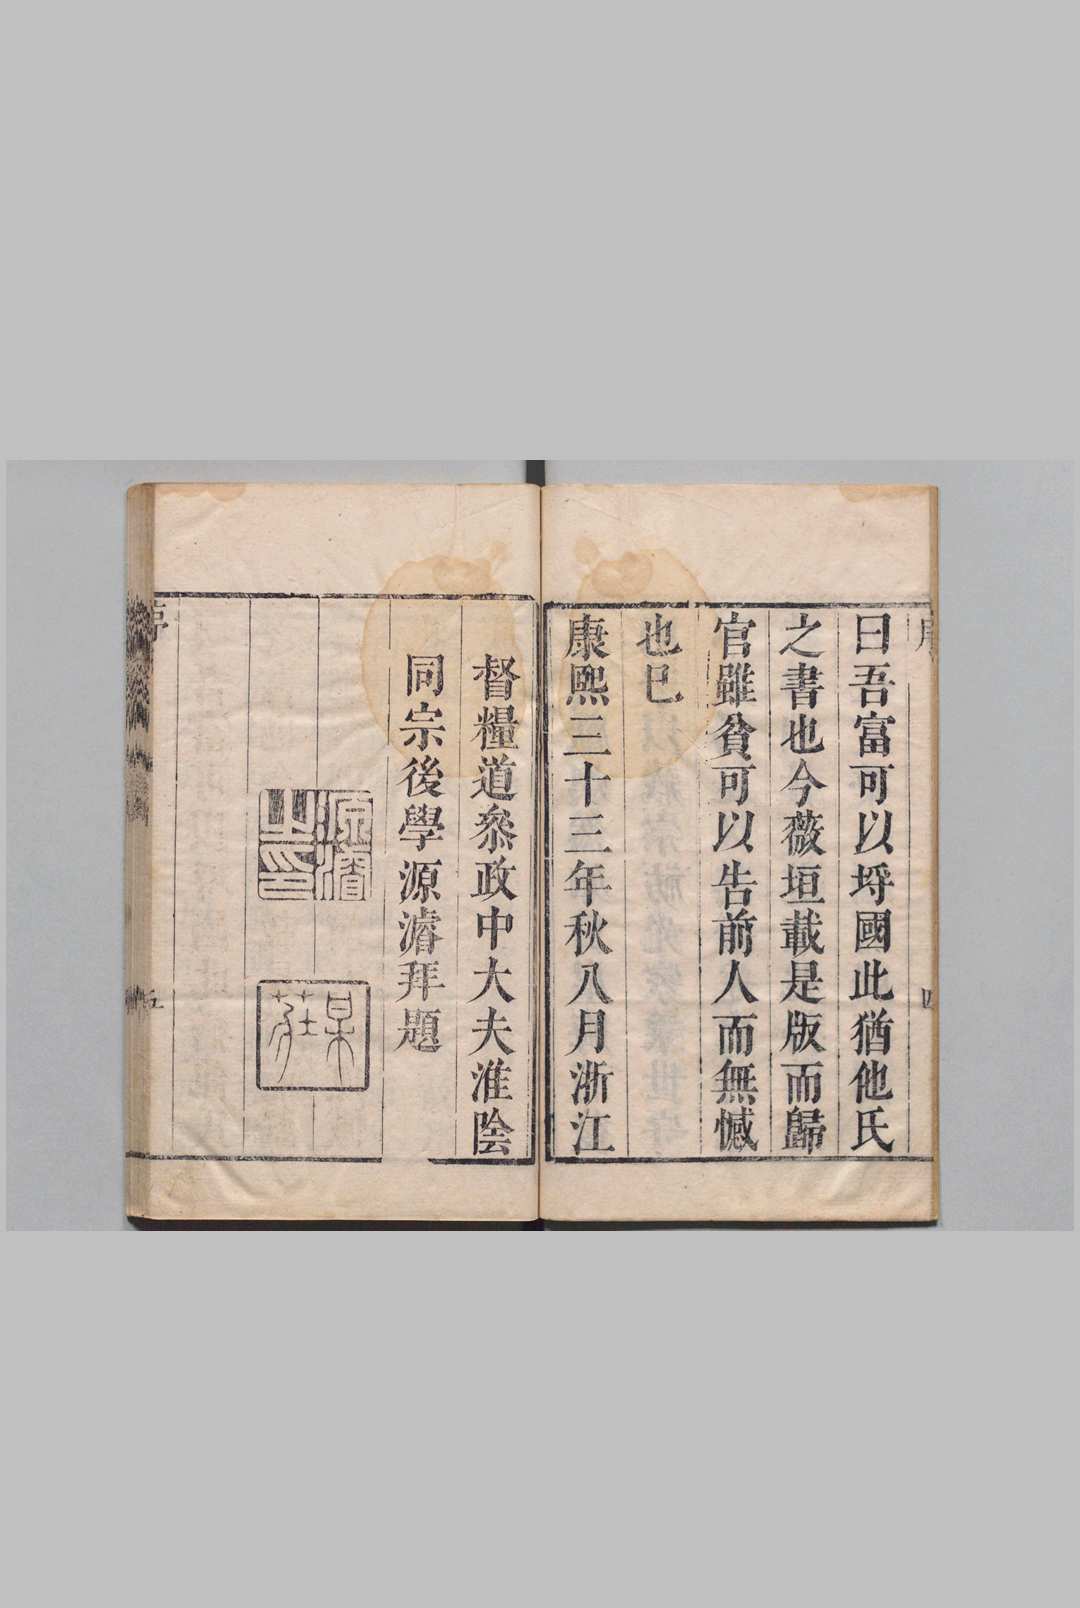 曰吾富可以埒國此猶他氏
之書也今薇垣載是版而歸
官雖貧可以告前人而無憾
也巳
康熙三十三年秋八月浙江
督糧道叅政中大夫淮陰
同宗後學源濬拜題
源濬之印
五
四